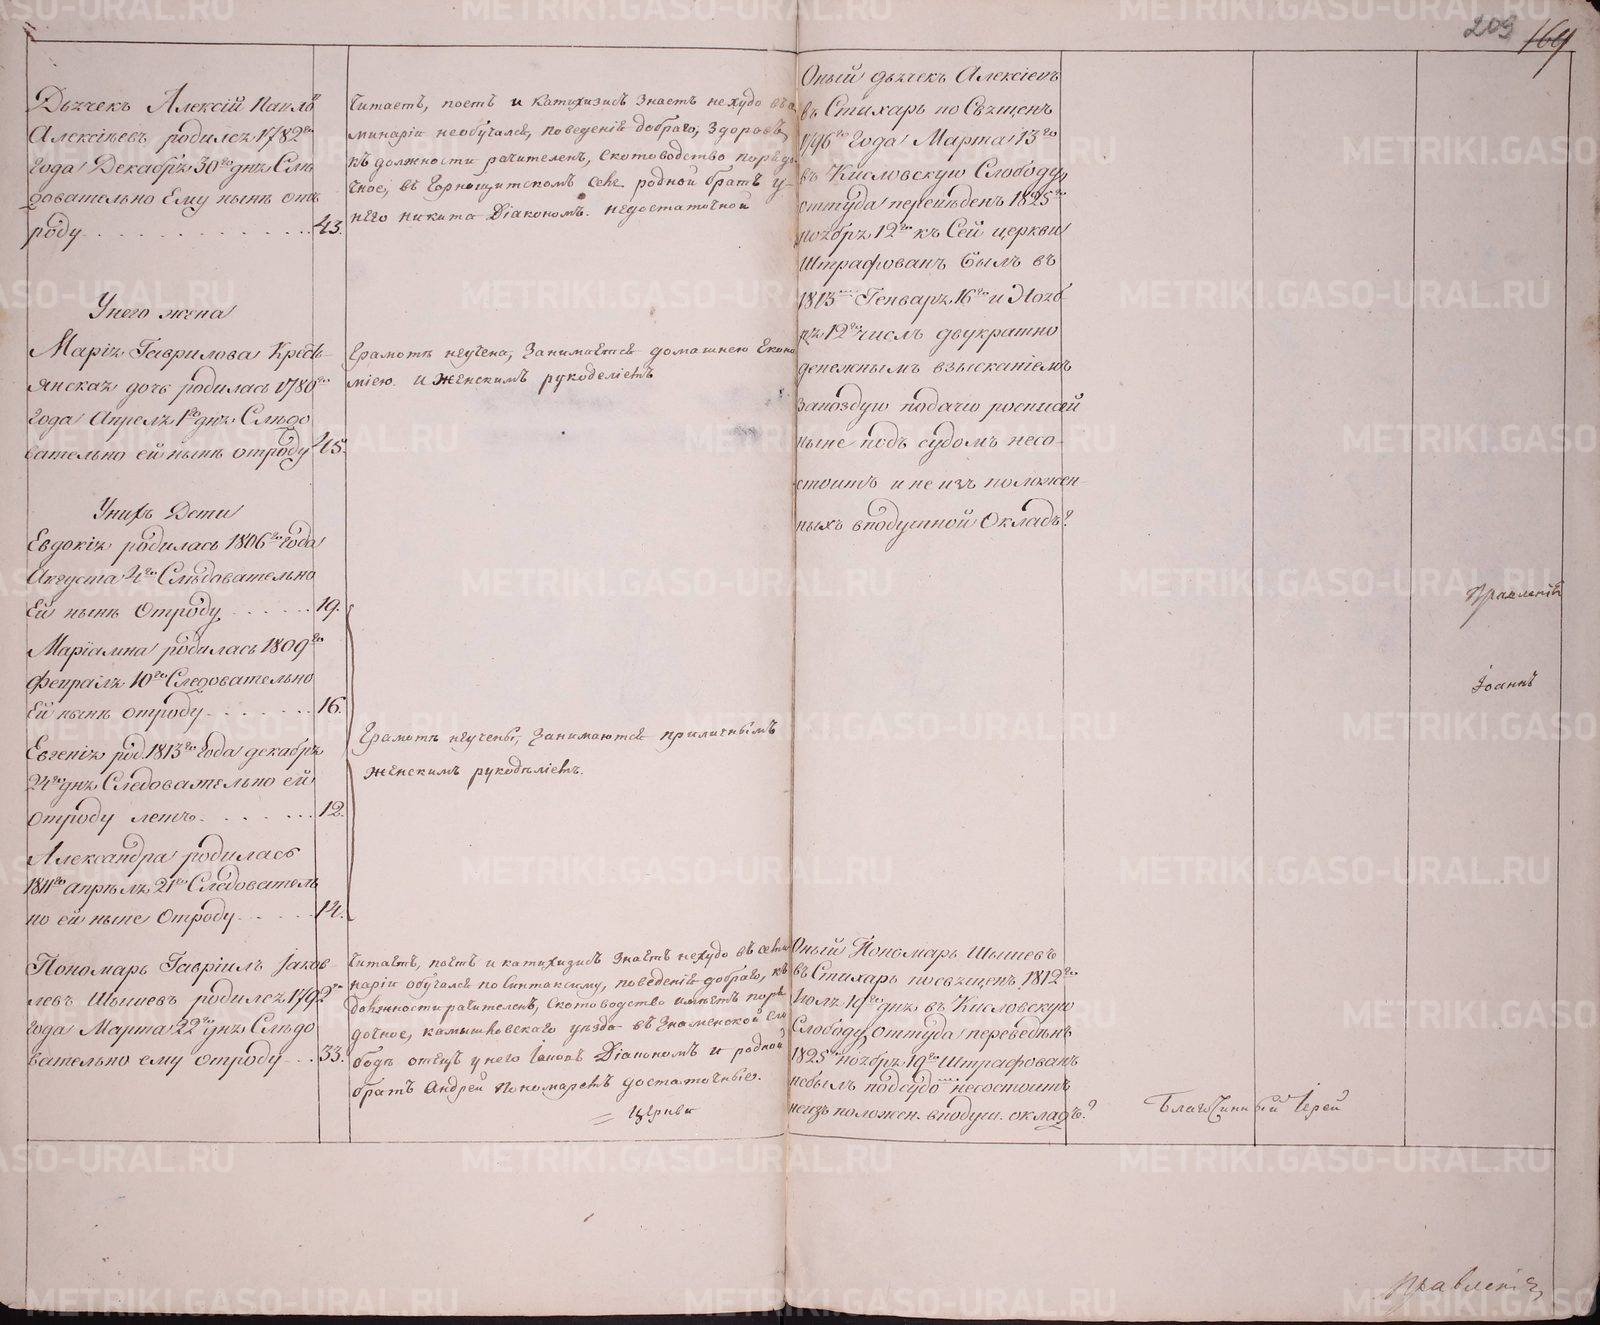 209
169
Дьячекъ Алексій Павло
Алексѣевъ родился 1782го
года Декабря 30го дня Слѣ
довательно Ему нынѣ отъ
роду 43.
Читаетъ, поетъ и Катихизисъ Знаетъ нехудо въ се
минаріи необучался, поведенія добраго, Здоровъ,
къ должности рачителенъ, скотоводство порядо
чное, въ Горнощитскомъ селѣ родной братъ у
него Никита Діакономъ. недостаточной
Оный дьячекъ Алексіевъ
въ Стихарь по Священь
1796го Года Марта 13го
въ Кисловскую Слободу,
оттуда переведенъ 1825го
ноября 12го къ Сей церкви
Штрафованъ былъ въ
1813мъ Генваря 16го и Нояб
ря 12го числъ двукратно
денежнымъ взысканіемъ
запоздую подачю росписей
ныне подъ судомъ несо-
стоитъ и не изъ положен-
ныхъ вподушной Окладъ?
Унего жена
Марія Гаврилова Кресть-
янская дочь родилась 1780го
года Апреля 1го дня Слѣдо
вательно ей нынѣ отроду 45.
Грамотѣ неучена, Занимается домашнею Еконо
міею и женскимъ рукоделіемъ
Унихъ Дети
Евдокія родилась 1806го года
Августа 4го Слѣдовательно
Ей нынѣ Отроду 19.
Маріамна родилась 1809го
Февраля 10го Следовательно
Ей нынѣ отроду 16.
Евгенія род. 1813го года декабря
24го дня Следовательно ей
Отроду летъ 12.
Александра родилась
1811го апрѣля 21го Следователь
но ей ныне Отроду 14.
Грамотѣ неучены, Занимаются приличнымъ
женскимъ рукодѣліемъ.
Правленія
Іоаннъ
Пономарь Гавріилъ Іаков
левъ Шышевъ родился 1792го
года Марта 22го дня Слѣдо
вательно ему отроду 33.
Читаетъ, поетъ и катихизисъ Знаетъ нехудо въ семи
наріи обучался по Синтаксиму, поведенія добраго, къ
должности рачителенъ, Скотоводство имѣетъ поря
дочное, камышловскаго уѣзда въ Знаменской Сло
бодѣ отецъ у него Іаковъ Діакономъ и родной
братъ Андрей Пономаремъ достаточные.
Церкви
Оный Пономарь Шышевъ
въ Стихарь посвященъ 1812го
Іюля 19го дня въ Кисловскую
Слободу, оттуда переведѣнъ
1825го ноября 19го Штрафованъ
небылъ подсудо несостоитъ
неизъ положен. вподуш. окладъ?
Благочинный Іерей
Правленія